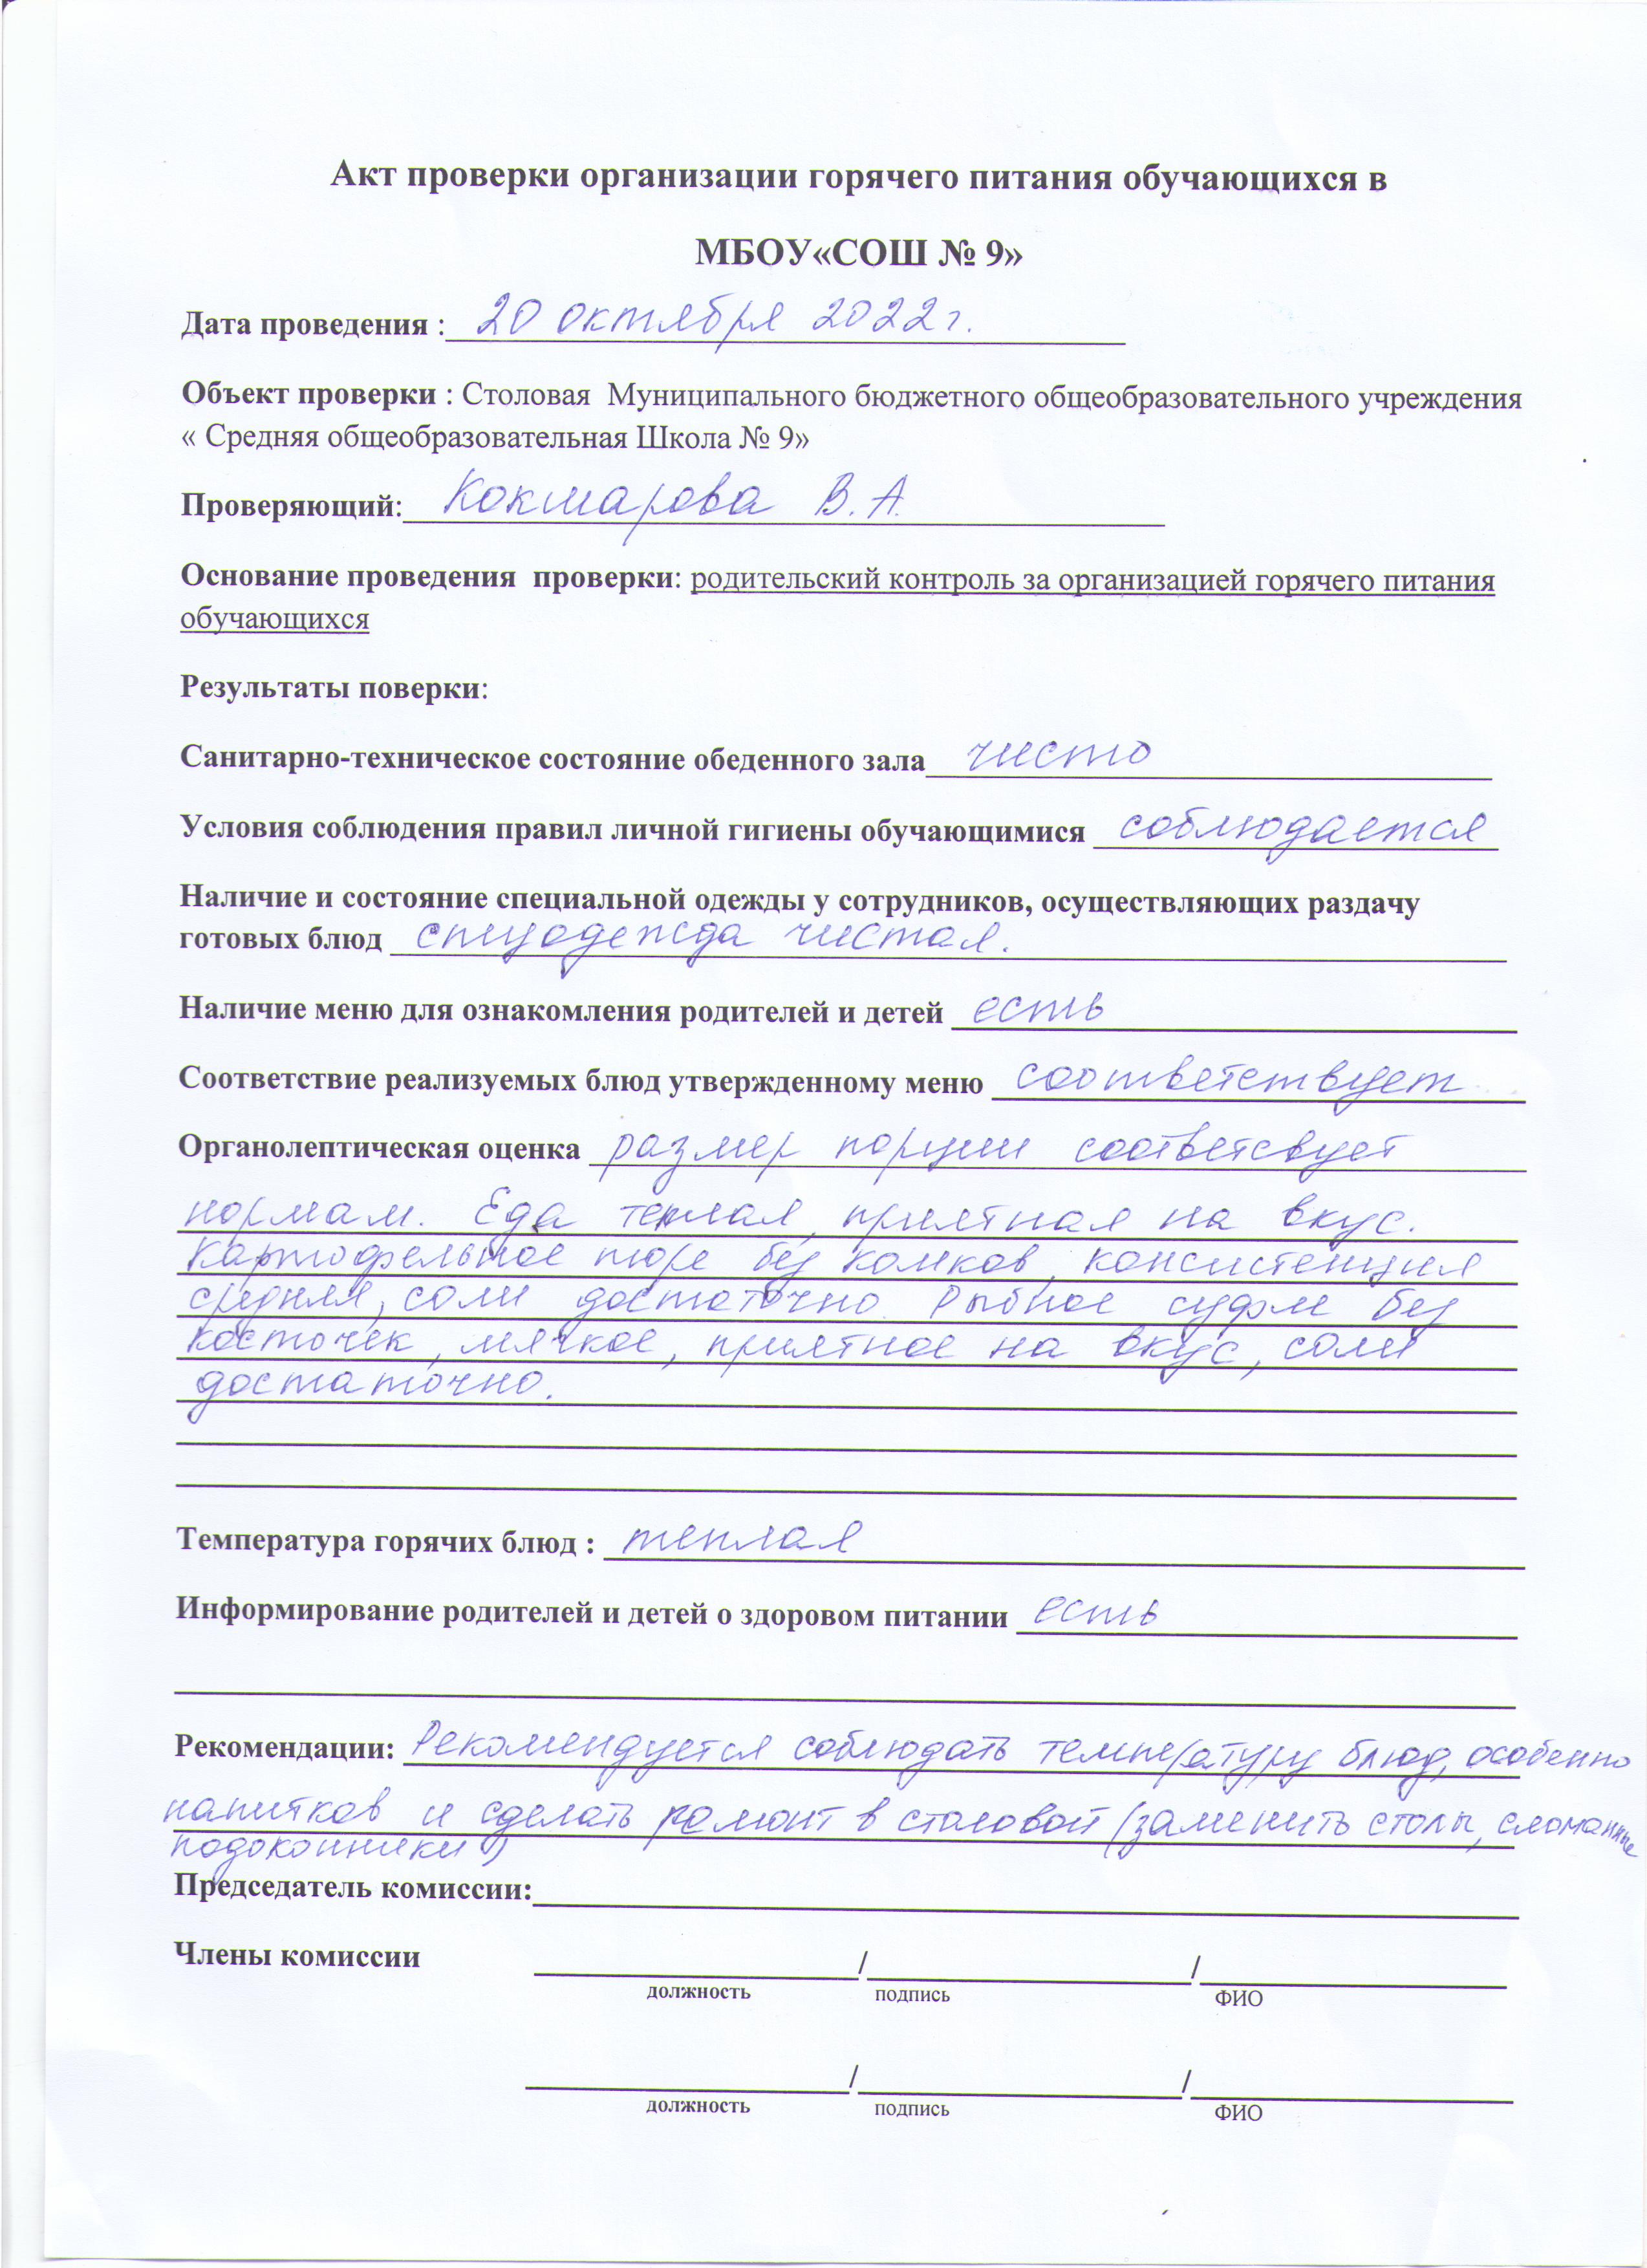 Акт проверки организации горячего питания обучающихся в
МБОУ«СОШ № 9»
Дата проведения : 20 октября 2022 г.
Объект проверки : Столовая Муниципального бюджетного общеобразовательного учреждения
« Средняя общеобразовательная Школа № 9»
Проверяющий: Кокшарова В.А.
Основание проведения проверки: родительский контроль за организацией горячего питания
обучающихся
Результаты поверки:
Санитарно-техническое состояние обеденного зала чисто
Условия соблюдения правил личной гигиены обучающимися соблюдается
Наличие и состояние специальной одежды у сотрудников, осуществляющих раздачу
готовых блюд спецодежда чистая.
Наличие меню для ознакомления родителей и детей есть
Соответствие реализуемых блюд утвержденному меню соответствует
Органолептическая оценка размер порции соответсвует
нормам. Еда теплая, приятная на вкус.
Картофельное пюре без комков, консистенция
средняя, соли достаточно. Рыбное суфле без
косточек, мягкое, приятное на вкус, соли
достаточно.
Температура горячих блюд : теплая
Информирование родителей и детей о здоровом питании есть
Рекомендации: Рекомендуется соблюдать температуру блюд, особенно
напитков и сделать ремонт в столовой (заменить столы, сломанные
подоконники)
Председатель комиссии:
Члены комиссии / /
должность подпись ФИО
/ /
должность подпись ФИО